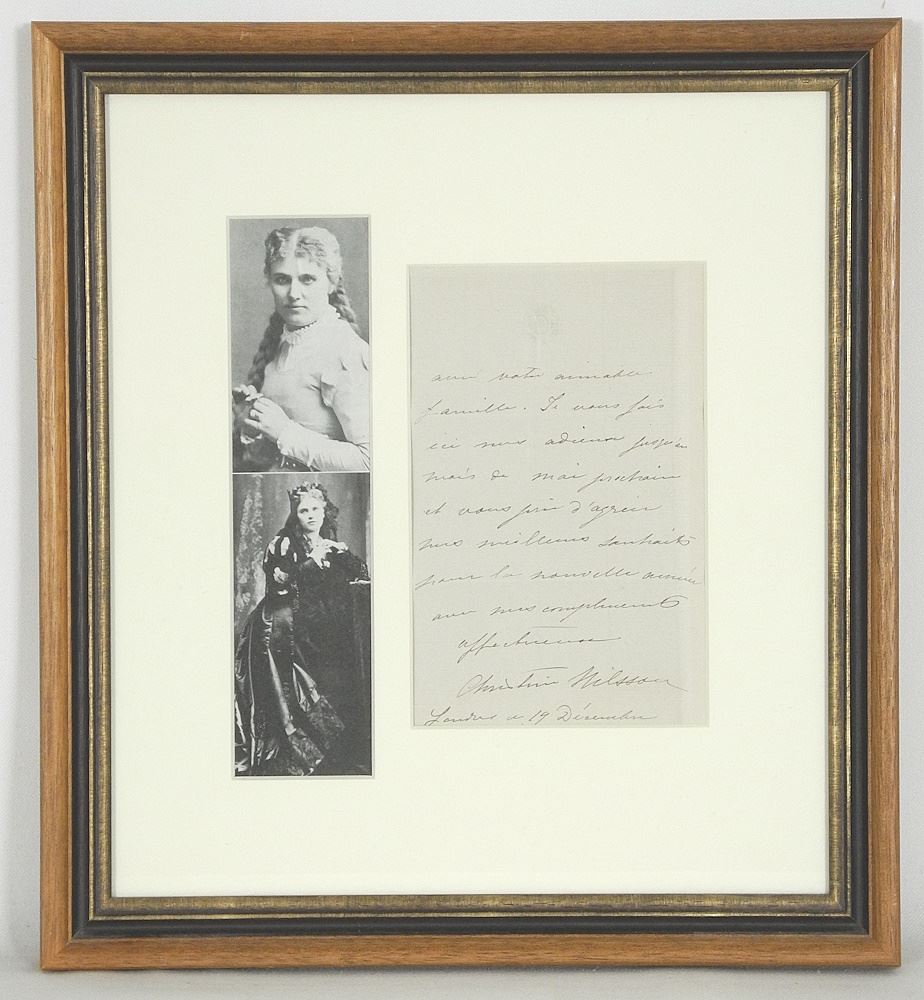 avec votre aimable
famille. Je vous fais
ici mes adieux jusqu'au
mois de mai prochain
et vous prie d'agréer
mes meilleurs souhaits
pour la nouvelle année
avec mes compliments
affectueux
Christine Nilsson
Londres a 19 Décembre